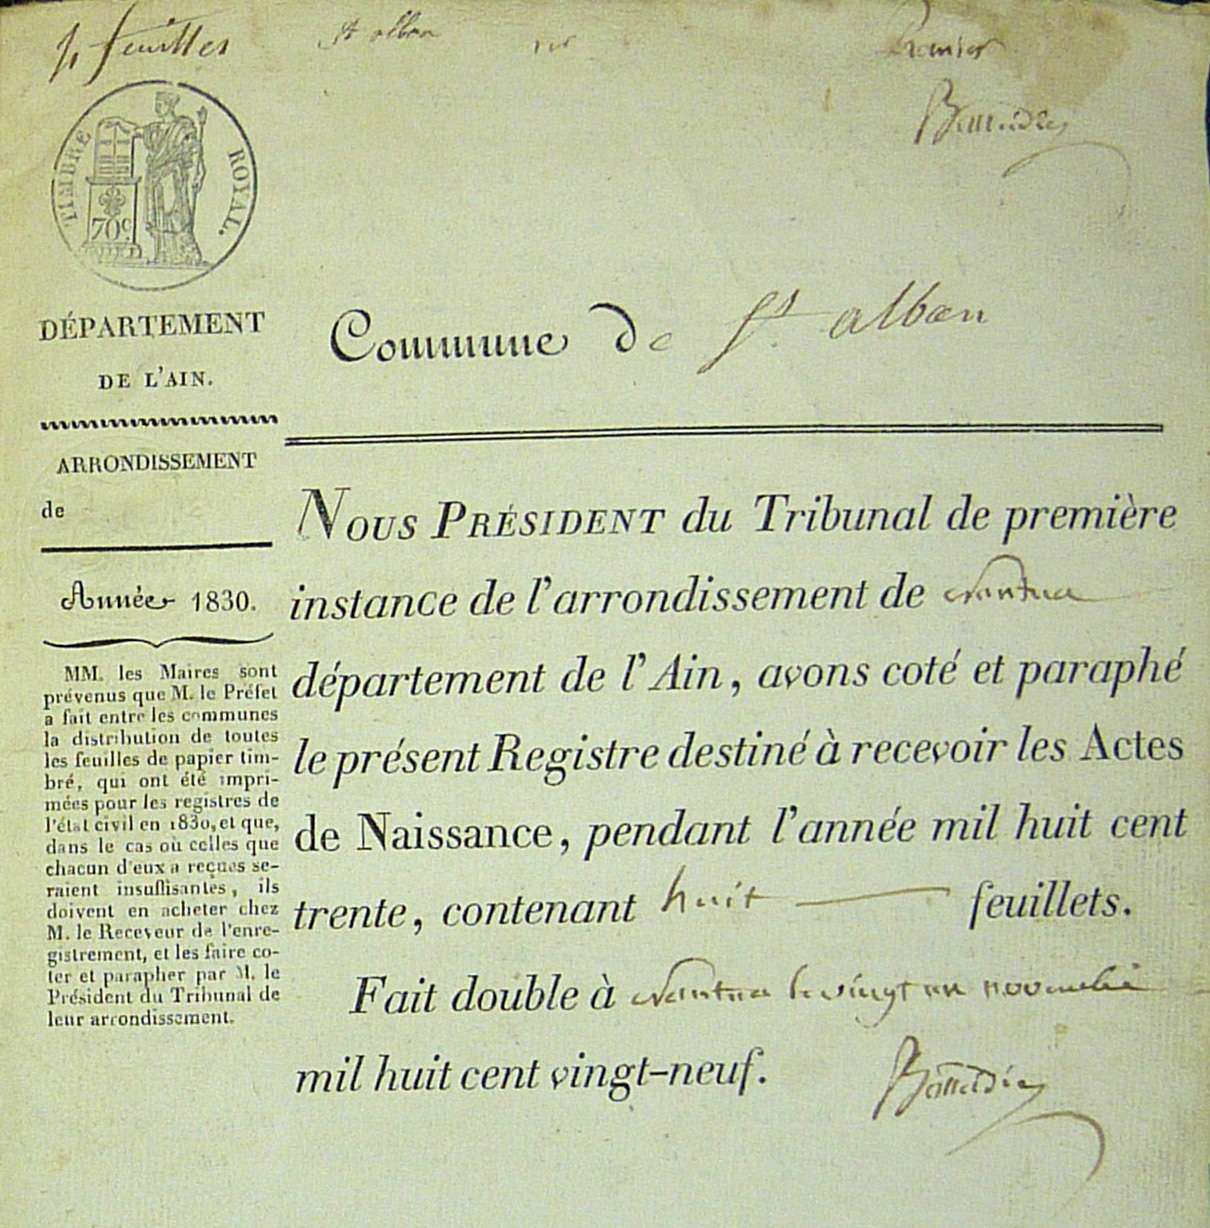 feuilles
St alban
Premier
TIMBRE ROYAL.
70c.
DÉPARTEMENT
DE L'AIN.
ARRONDISSEMENT
de
Année 1830.
MM. les Maires sont
prévenus que M. le Préfet
a fait entre les communes
la distribution de toutes
les feuilles de papier tim-
bré, qui ont été impri-
mées pour les registres de
l'état civil en 1830, et que,
dans le cas où celles que
chacun d'eux a reçues se-
raient insuffisantes, ils
doivent en acheter chez
M. le Receveur de l'enre-
gistrement, et les faire co-
ter et parapher par M. le
Président du Tribunal de
leur arrondissement.
Commune de St. alban
NOUS PRÉSIDENT du Tribunal de première
instance de l'arrondissement de nantua
département de l'Ain, avons coté et paraphé
le présent Registre destiné à recevoir les Actes
de Naissance, pendant l'année mil huit cent
trente, contenant huit feuillets.
Fait double à nantua le vingt un novembre
mil huit cent vingt-neuf.